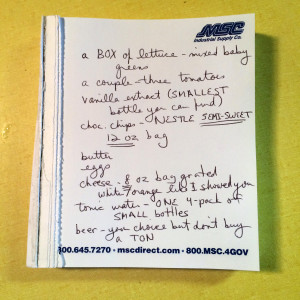 MSC
Industrial Supply Co.
a BOX of lettuce - mixed baby
greens
a couple - three tomatoes
vanilla extract (SMALLEST
bottle you can find)
choc. chips - NESTLE SEMI-SWEET
12 oz bag
butter
eggs
cheese - 8 oz bag grated
white/orange like I showed you
tonic water - ONE 4-pack of
SMALL bottles
beer - you choice but don't buy
a TON
800.645.7270 - mscdirect.com - 800.MSC.4GOV